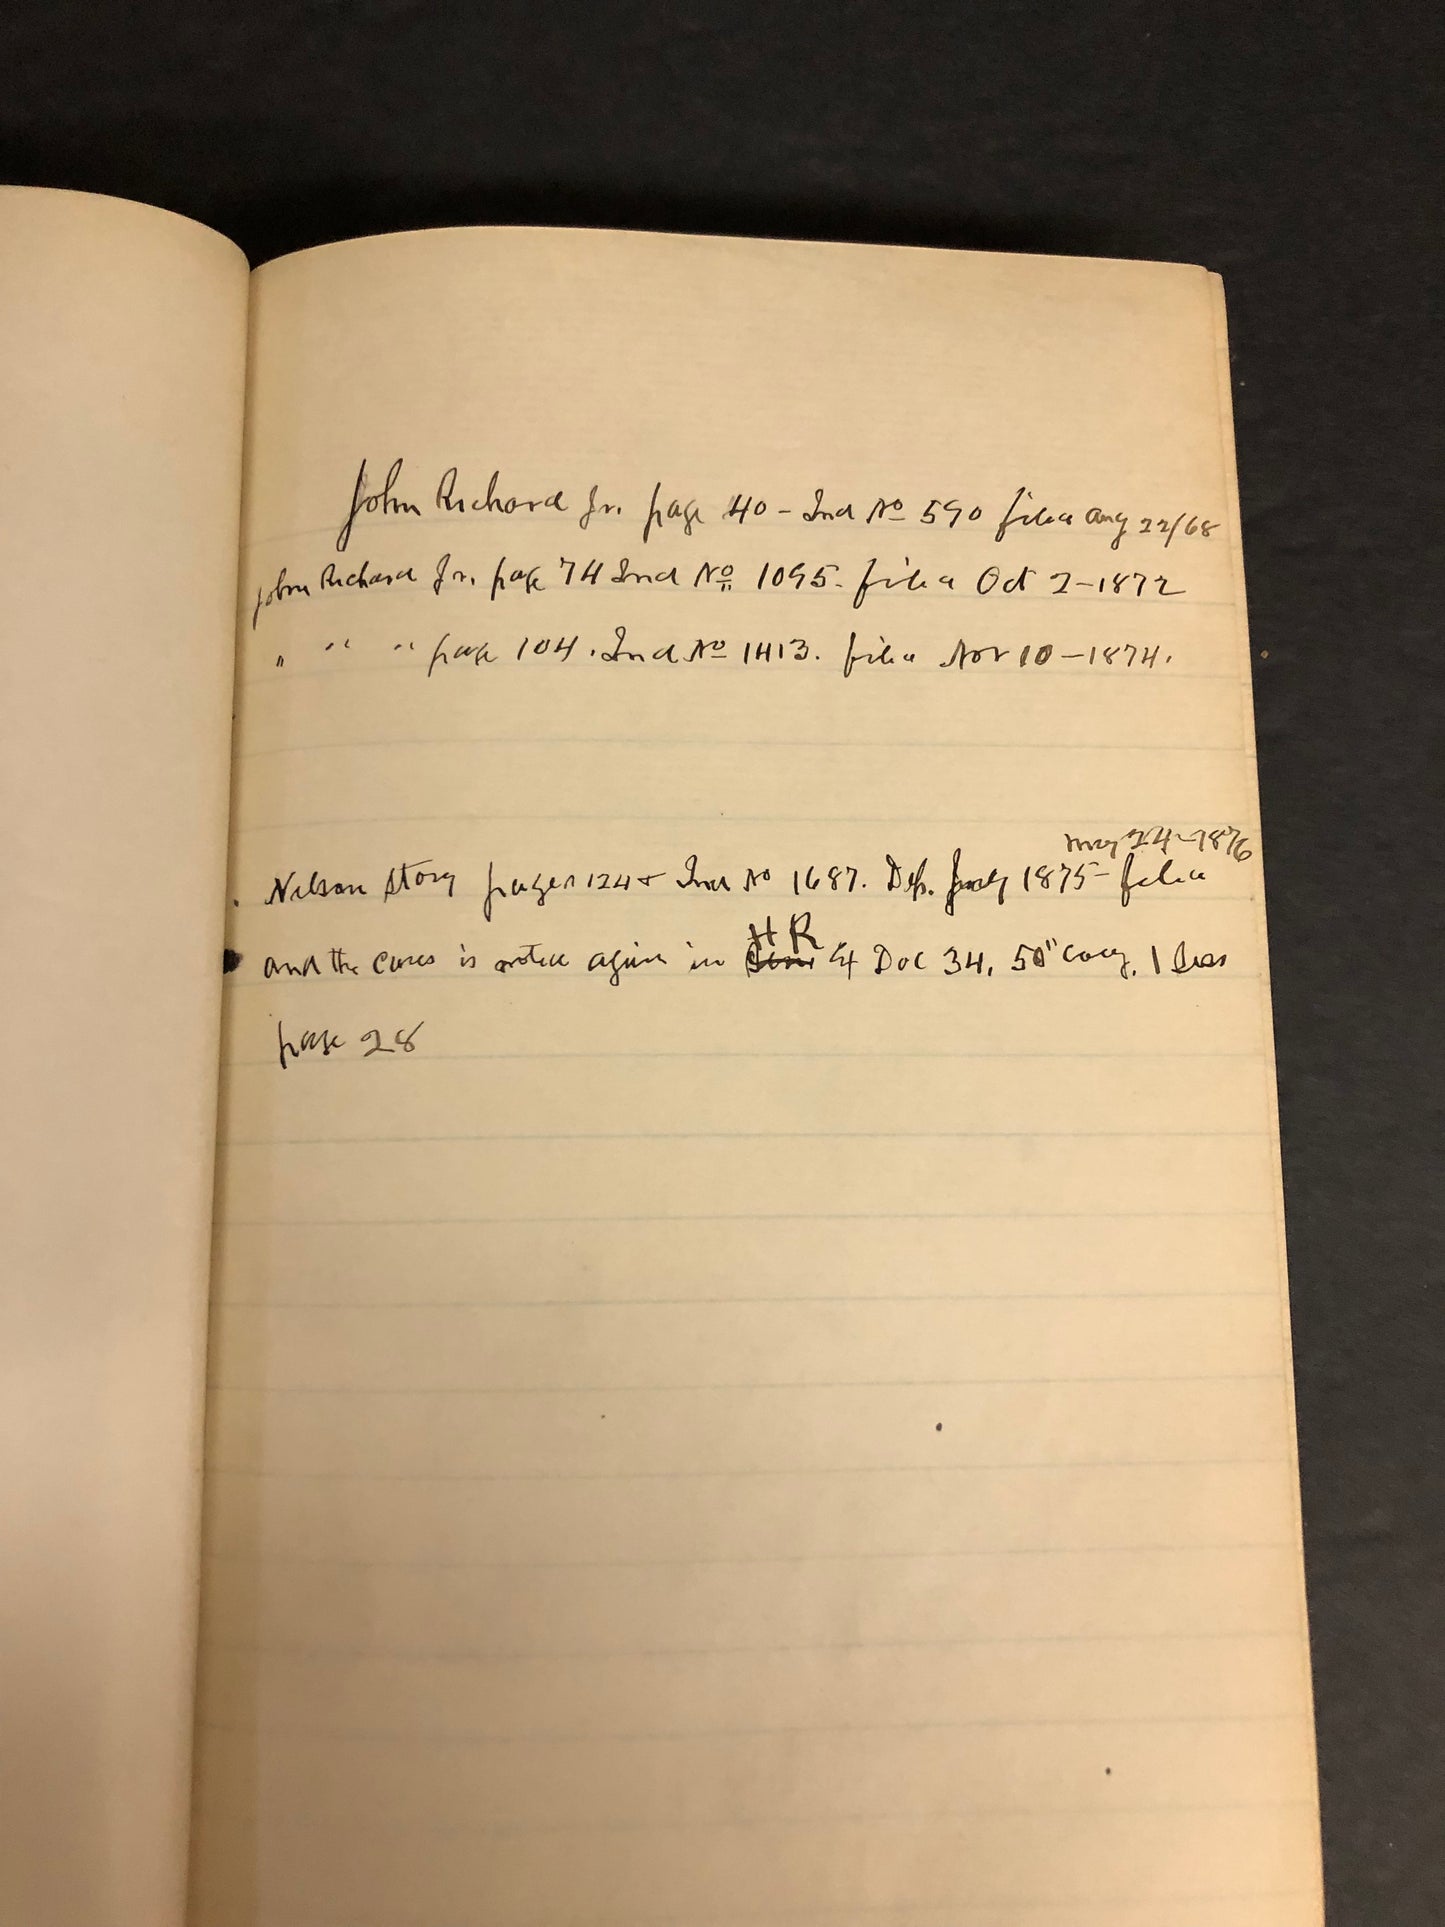 John Richard Jr. page 40 - Ind No 590 filed Aug 22/68
John Richard Jr. page 74 Ind No 1095. filed Oct 2-1872
" " " page 104. Ind No 1413. filed Nov 10-1874.
May 24-1876
Nelson Story pages 124 + Ind No 1687. Dep. July 1875- filed
HR
and the cases is noted again in Sen Ex Doc 34, 50" Cong. 1 Sess
page 28